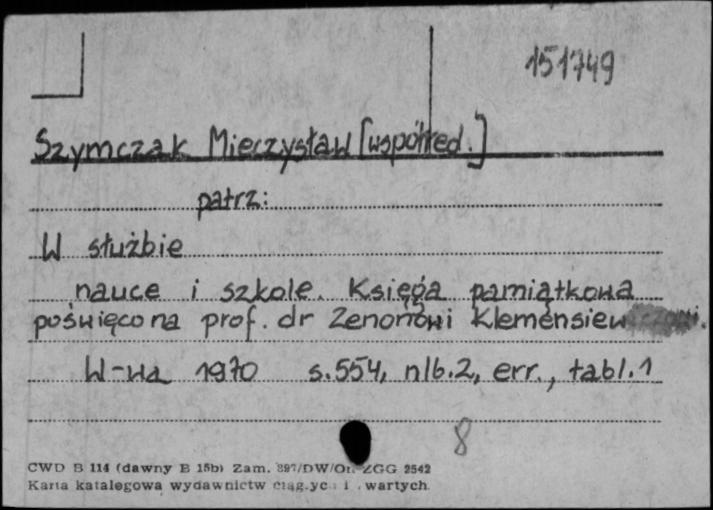 151749
Szymczak Mieczysław [współred.]
patrz:
W służbie
nauce i szkole. Księga pamiątkowa
poświęcona prof. dr Zenonowi Klemensiewiczowi.
W-wa 1970 s. 554, nlb. 2, err., tabl. 1
8
CWD B 114 (dawny B 15b) Zam. ZGG 2542
Karta katalogowa wydawnictw i wartych